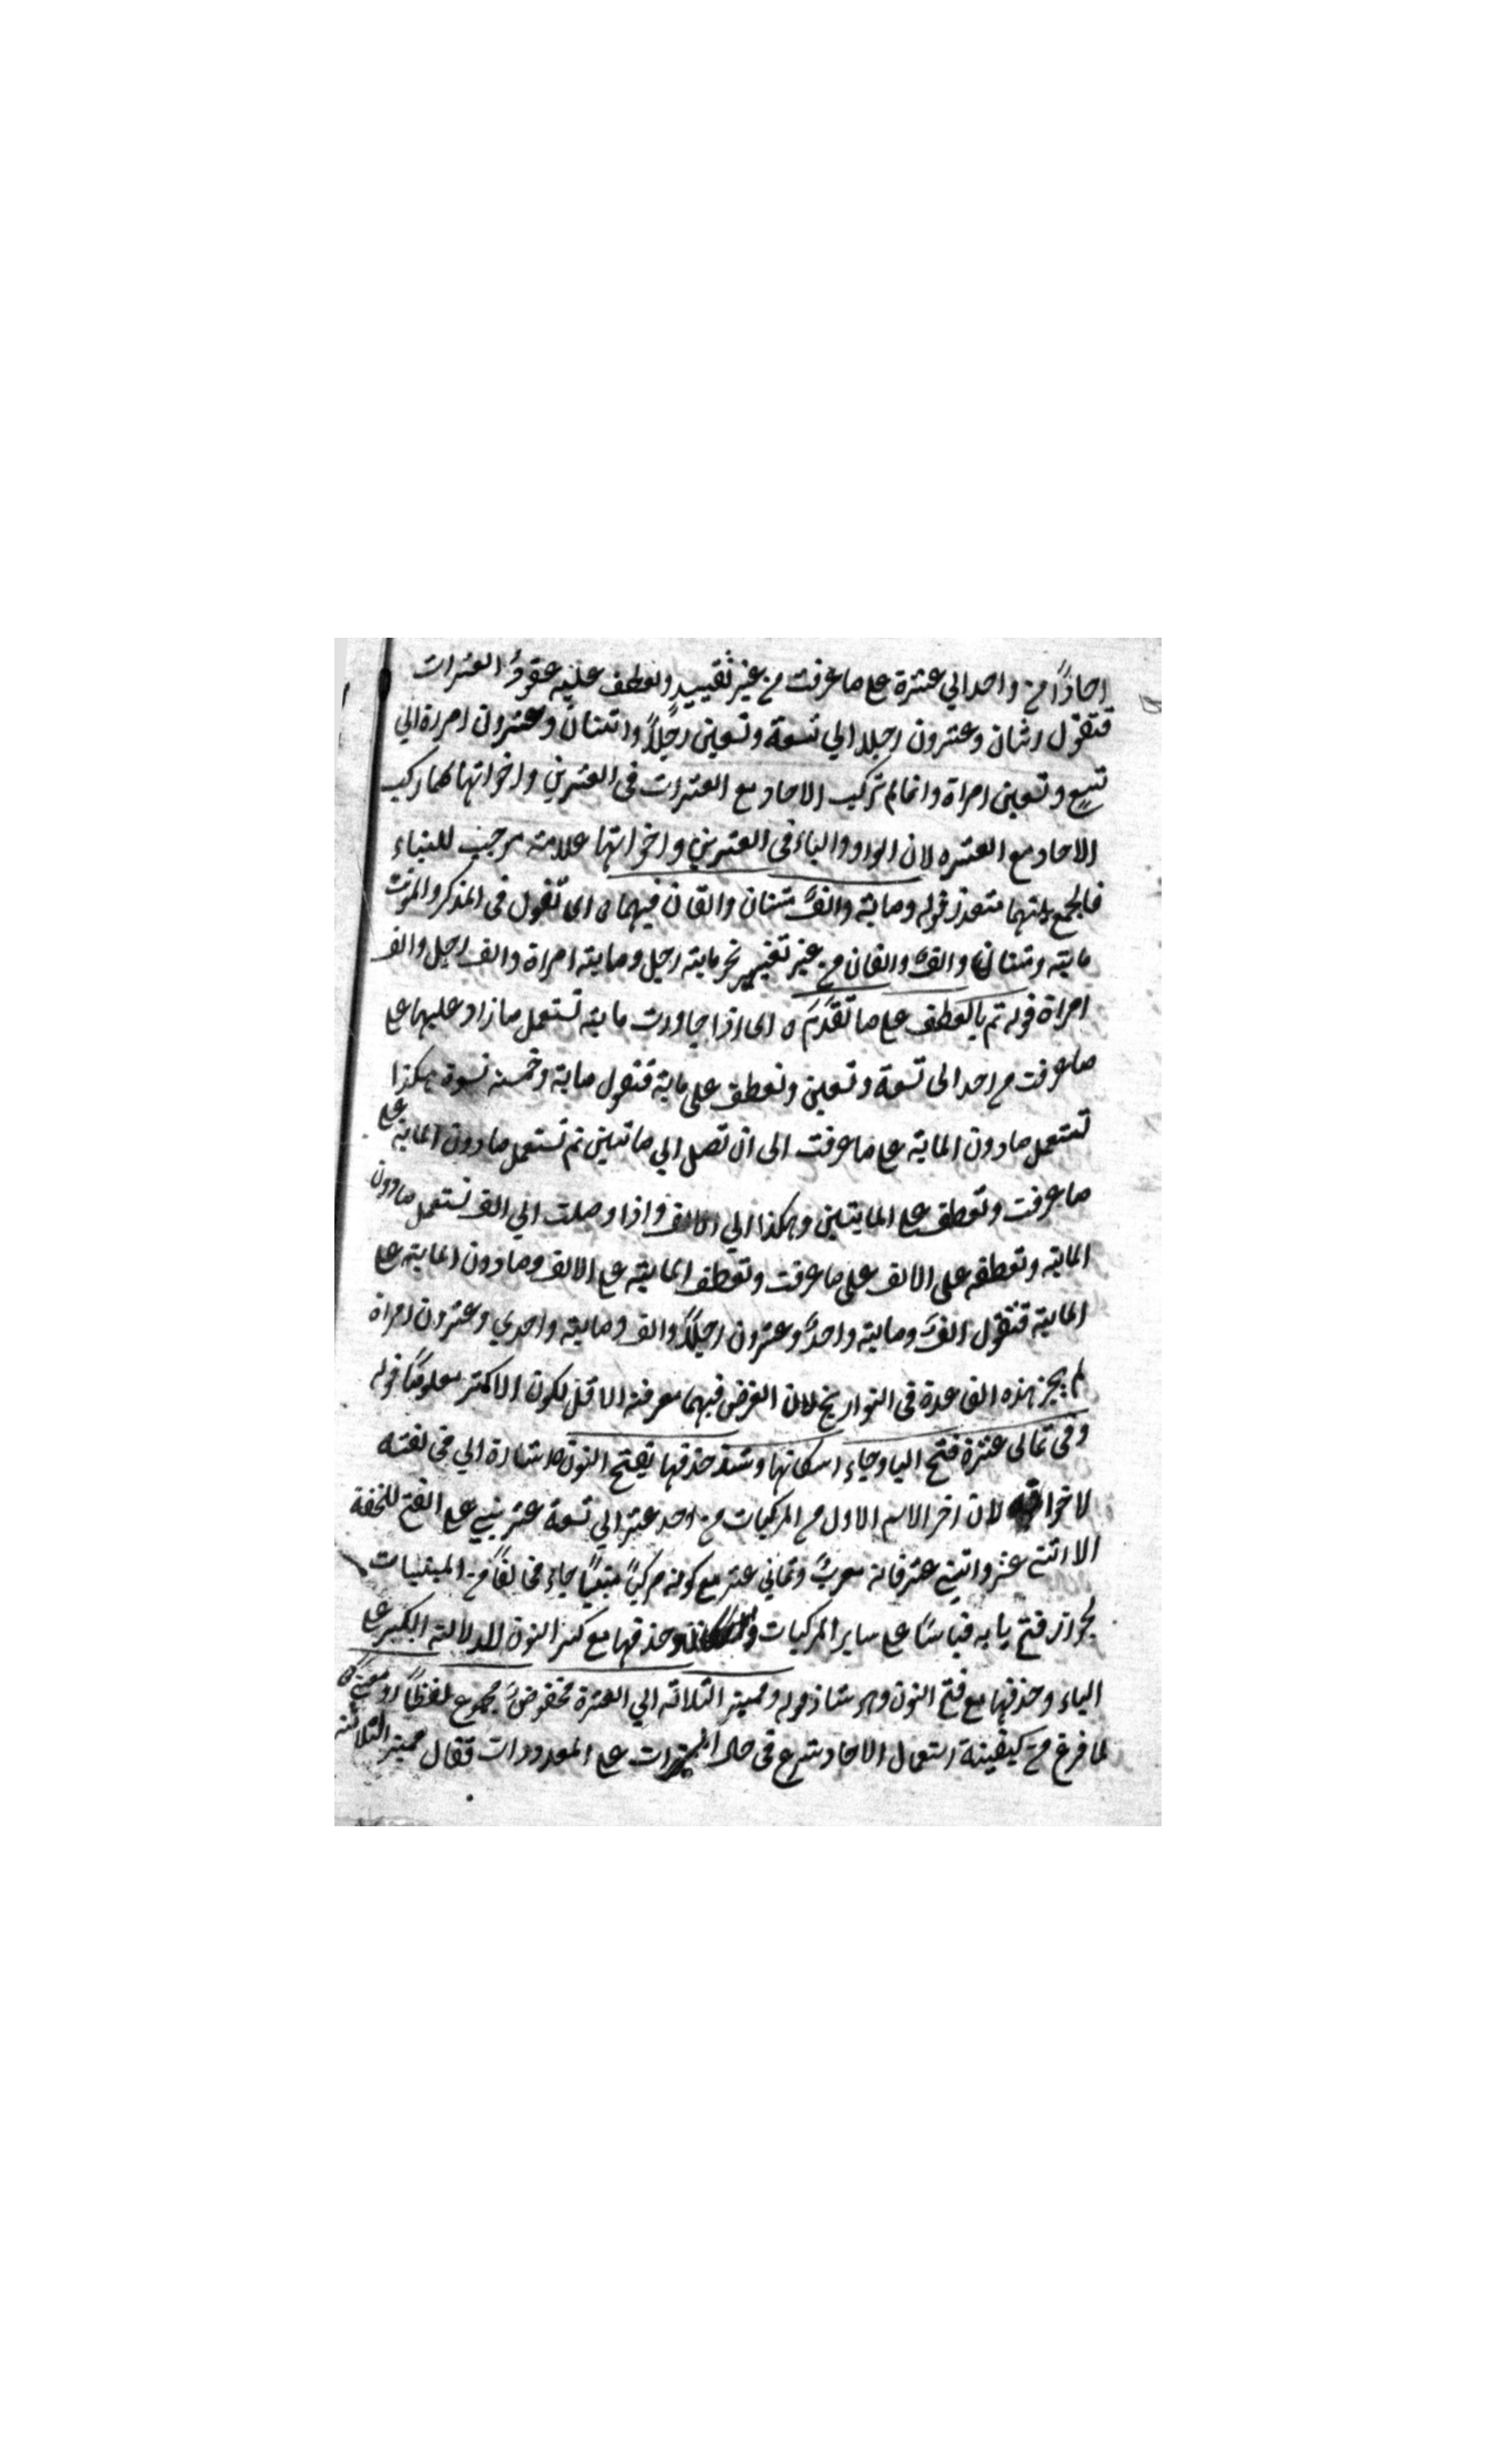 احادًا من واحد الي عشرة على ما عرفت من غير تقييد وتعطف عليه عقود العشرات
فتقول اثنان وعشرون رجلا الي تسعة وتسعين رجلًا واثنتان وعشرون امراة الي
تسعٍ وتسعين امراة وانما لم تركب الاحاد مع العشرات في العشرين واخواتها كما ركب
الاحاد مع العشره لان الواو والياء في العشرين واخواتها علامة موجب للبناء
فالجمع بينهما متعذر قوله وماية والفٌ مئتان والفان فيهما ه اى تقول في المذكر والمؤنث
ماية ومئتان والفٌ والفان من غير تغيير نحو ماية رجل وماية امراة والف رجل والف
امراة قوله ثم بالعطف على ما تقدَّم ه اى اذا جاوزت ماية تستعمل ما زاد عليهما على
ما عرفت من احد الى تسعة وتسعين وتعطف على ماية فتقول ماية وخمسة نسوة هكذا
تستعمل ما دون الماية على ما عرفت الى ان تصل الي ماتين ثم تستعمل ما دون الماية على
ما عرفت وتعطف على المايتين وهكذا الي الالف واذا وصلت الي الف تستعمل ما دون
الماية وتعطفه على الالف على ما عرفت وتعطف الماية على الالف وما دون الماية على
الماية فتقول الفٌ وماية واحدٌ وعشرون رجلًا والف وماية واحدي وعشرون امراة
لم يجز هذه القاعدة في التواريخ لان الغرض فيهما معرفة الاقل لكون الاكثر معلومًا قوله
وفي ثماني عشرة فتح اليا وجاء اسكانها وشذ حذفها بفتح النون ه اشارة الي مخالفته
لاخواته لان اخر الاسم الاول من المركبات من احد عشر الي تسعة عشر بني على الفتح للخفة
الا اثني عشر واثنتي عشر فانه معربٌ وثماني عشر مع كونه مركبًا مبنيًا جاء مخالفًا من المبنيات
لجواز فتح يايه قياسًا على ساير المركبات وحذفها مع كسر النون لدلالة الكسر على
الياء وحذفها مع فتح النون وهو شاذ قوله ومميز الثلاثة الي العشرة مخفوضٌ مجموع لفظًا او معنىً
لما فرغ من كيفية استعمال الاحاد شرع في حال المميزات على المعدودات فقال مميز الثلاثة